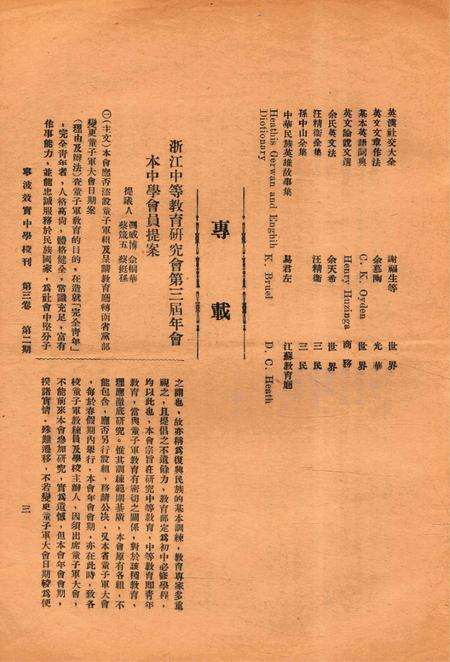 英漢社交大全 謝福生等 世界
英文文章作法 余慕陶 光華
基本英語詞典 C. K. Oyden 世界
英文論說文選 Henry Huzinga 商務
余氏英文法 余天希 世界
汪精衛全集 汪精衛 三民
孫中山全集 三民
中華民族英雄故事集 易君左 江蘇教育廳
Heathis Gerwan and Enghih K. Bruel D. C. Heath
Dictionary
專載
浙江中等教育研究會第三屆年會
本中學會員提案
提議人
㈠(主文)本會應否添設童子軍組及呈請教育廳轉函省黨部
變更童子軍大會日期案
(理由及辦法)查童子軍教育的目的,在造就「完全青年」
,完全青年者,人格高尚,體格健全,常識充足,富有
作事能力,並能忠誠服務於民族國家,爲社會中堅分子
之謂也,故亦稱爲復興民族的基本訓練,教育專家多重
視之,且提倡之不遺餘力,教育部定爲初中必修學程,
均以此也,本會宗旨在研究中等教育,中等教育即青年
教育,當與童子軍教育有密切之關係,對於該種教育,
理應徹底研究。惟其訓練範圍甚廣,本會原有各組,不
能包含,應否另行設組,移請公决,又本省童子軍大會
,每於春假期內舉行,本會年會會期,亦在此時,致各
校童子軍教練員及學校主辦人,因須出席童子軍大會,
不能前來本會參加研究,實爲遺憾,但本會年會會期,
揆諸實情,殊難遷移,不若變更童子軍大會日期較爲便
寧波效實中學校刊 第三卷 第二期 三